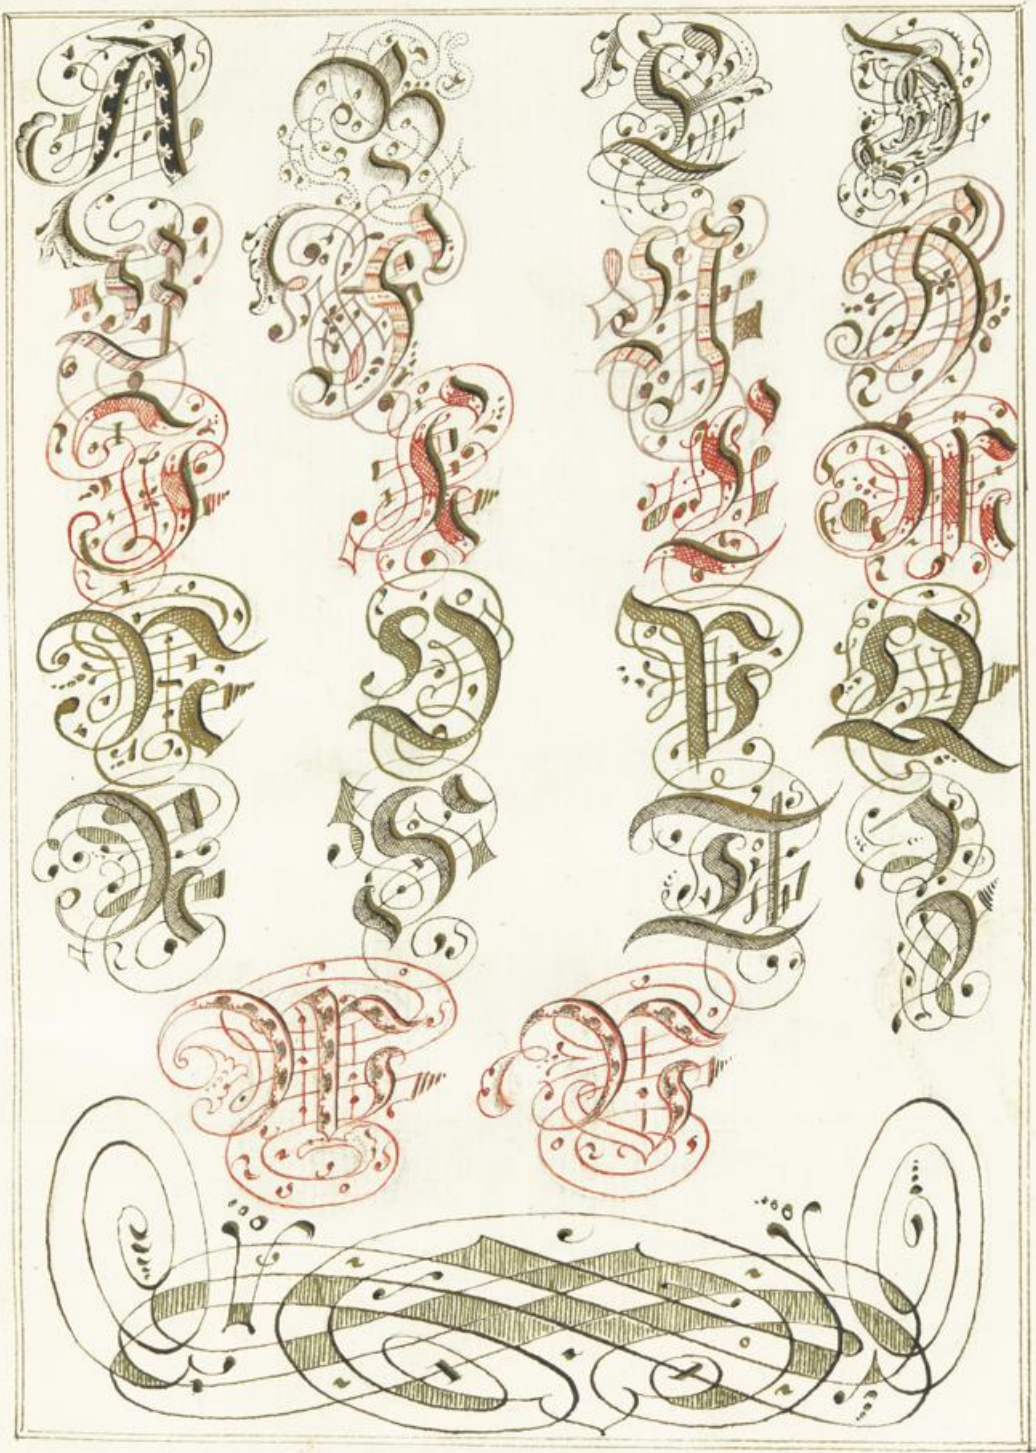 A B C D
E F G H
I K L M
N O P Q
R S T Z
W V